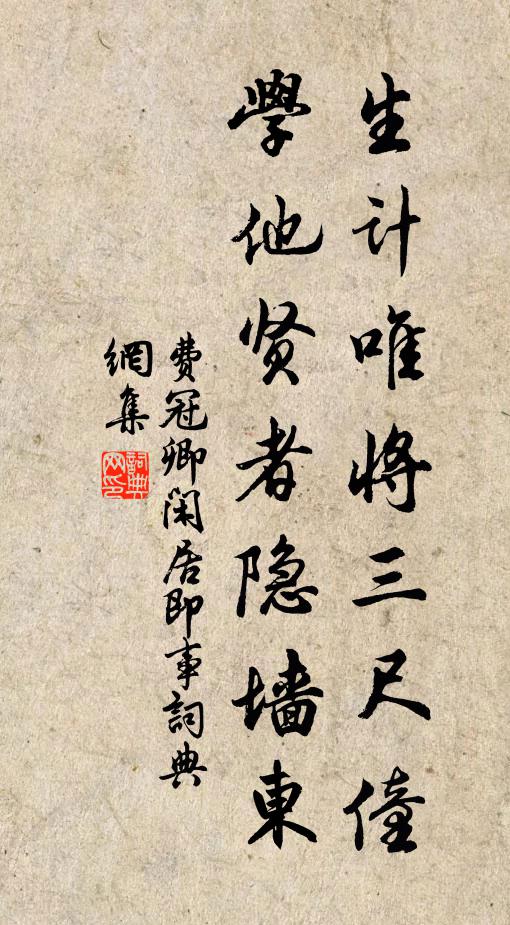 生计唯将三尺僮
學他贤者隐墙東
費冠卿閑居即事詞典
網集
詞典網印